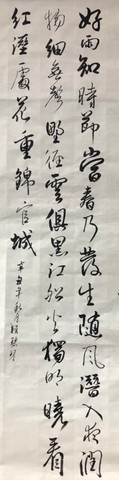 好雨知時節當春乃發生随風潛入夜潤
物細無聲野徑雲俱黑江船火獨明曉看
紅溼處花重錦官城
辛丑年秋月